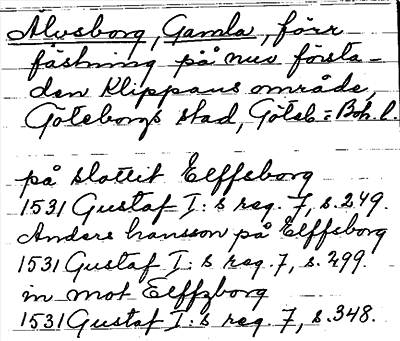 Älvsborg, Gamla, förr
fästning på nuv första-
den Klippans område,
Göteborgs stad, Göteb = Boh. l.
på slottit Elffsborg
1531 Gustaf I: s reg. 7, s. 249.
Anders hansson på Elffsborg
1531 Gustaf I: s reg. 7, s. 299.
in mot Elffzborg
1531 Gustaf I: s reg. 7, s. 348.